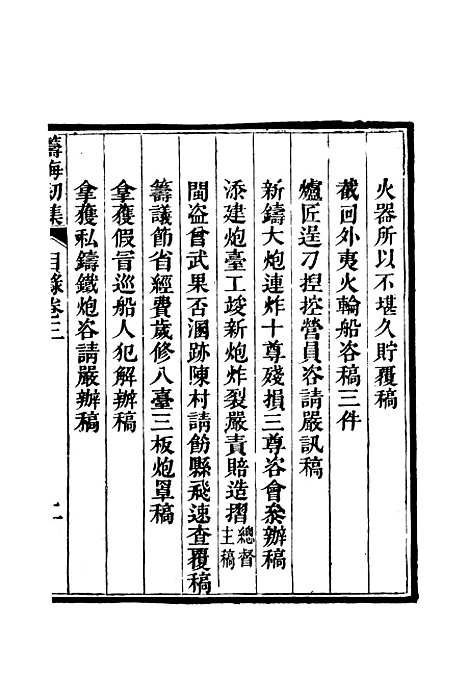 火器所以不堪久貯覆稿
截回外夷火輪船咨稿三件
爐匠逞刁揑控營員咨請嚴訊稿
新鑄大炮連炸十尊殘損三尊咨會叅辦稿
添建炮臺工竣新炮炸裂嚴責賠造摺總督主稿
閩盜曾武果否溷跡陳村請飭縣飛速查覆稿
籌議節省經費歲修八臺三板炮罩稿
拿獲假冒巡船人犯解辦稿
拿獲私鑄鐵炮咨請嚴辦稿
籌海初集 目錄卷三